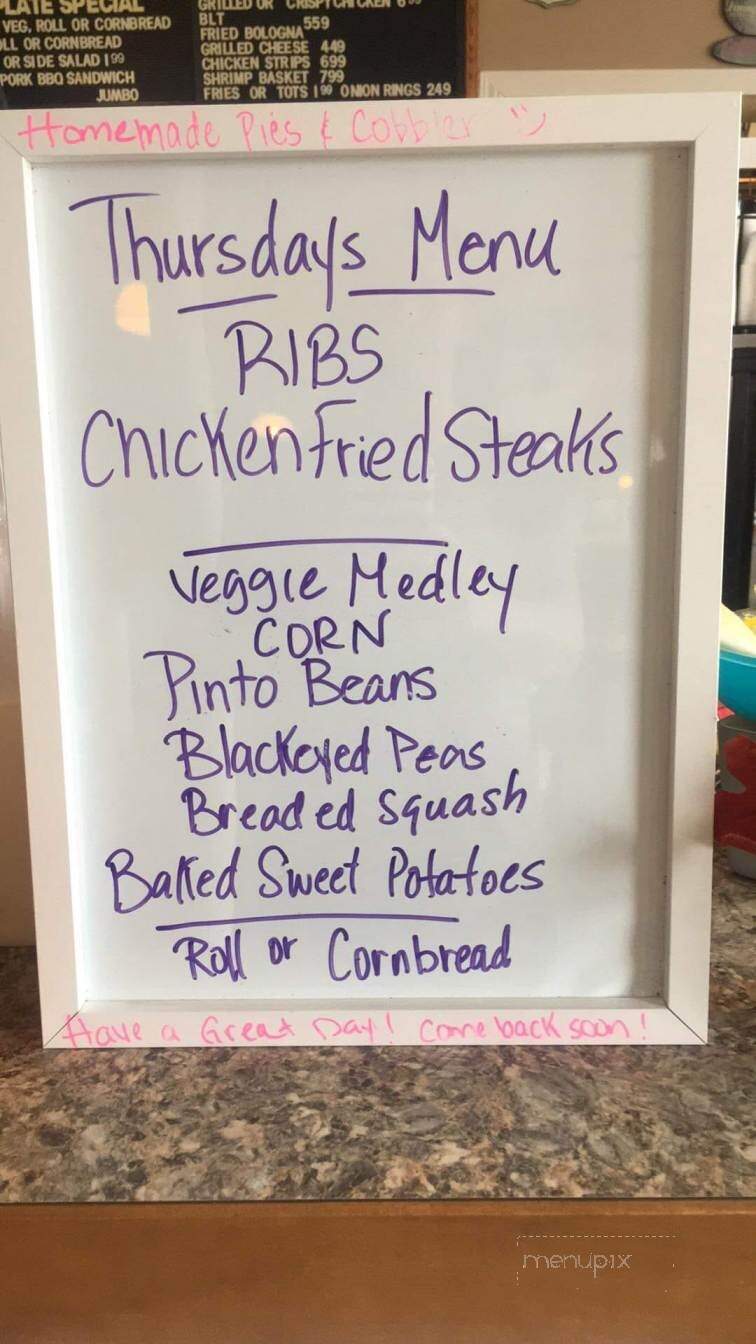 PLATE SPECIAL
VEG, ROLL OR CORNBREAD
OLL OR CORNBREAD
OR SIDE SALAD 1.99
PORK BBQ SANDWICH
JUMBO
GRILLED OR CRISPY CHICKEN
BLT
559
FRIED BOLOGNA
GRILLED CHEESE 449
CHICKEN STRIPS 699
SHRIMP BASKET 799
FRIES OR TOTS 1.99 ONION RINGS 249
Homemade Pies & Cobbler
Thursdays Menu
RIBS
Chicken Fried Steaks
Veggie Medley
CORN
Pinto Beans
Blackeyed Peas
Breaded Squash
Baked Sweet Potatoes
Roll or Cornbread
Have a Great Day! Come back soon!
menupix